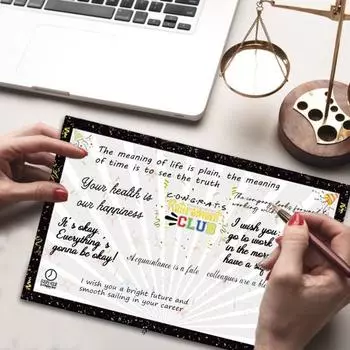 The meaning of life is plain, the meaning
of time is to see the truth
Your health is
our happiness
CONGRATS
Retirement
CLUB
It's okay.
Everything's
gonna be okay!
I wish you
go to work
in the
have a
Acquaintance is a fate
colleagues are a
I wish you a bright future and
smooth sailing in your career